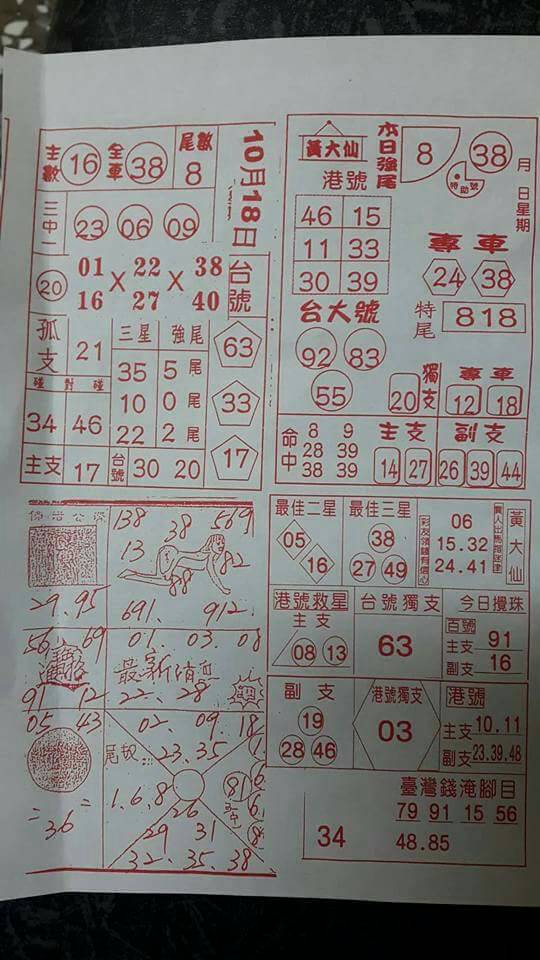 主數 16 全車 38 尾數 8
10月18日
三中一 23 06 09
20 01 16 × 22 27 × 38 40
台號
孤支 21
三星 強尾
35 5尾
10 0尾
22 2尾
碰 對 碰
34 46
63
33
17
主支 17 台號 30 20
黃大仙
港號
本日強尾 8
38
特助號
月 日 星期
46 15
11 33
30 39
專車
24 38
特尾 818
台大號
92 83
55
20 獨支
專車
12 18
命中
8 9
28 39
38 39
主支 副支
14 27 26 39 44
138 38 569
13
82
88
29.95 691. 912.
56 69
91 12
01. 03. 08
最新消息
22. 28
05 43
=36=
02. 09. 18
尾數 23.35
1.6.8
26
81
29 31
32. 35. 38
最佳二星
05
16
最佳三星
38
27 49
彩友領錢有信心
06
15.32
24.41
黃大仙
港號救星
主支
08 13
台號獨支
63
今日攪珠
百號
主支 91
副支 16
副支
19
28 46
港號獨支
03
港號
主支 10.11
副支 23.39.48
臺灣錢淹腳目
79 91 15 56
34 48.85